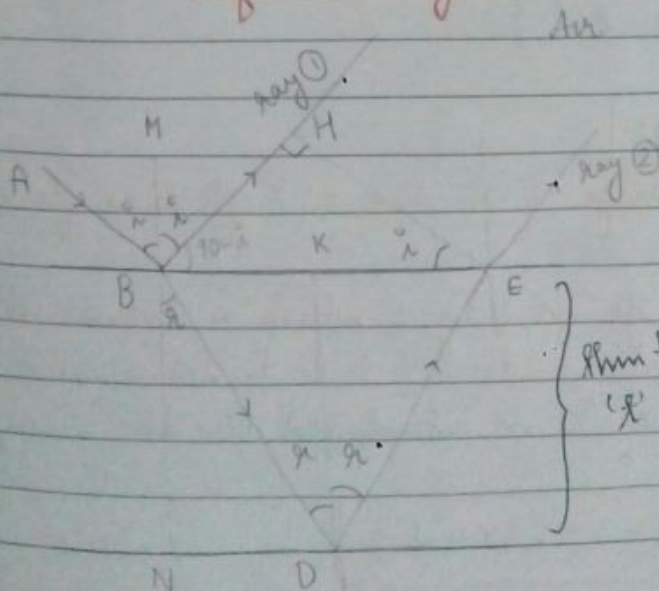 Air
ray ①
M
H
A
ray ②
i i
90-i
K
i
B
E
r
r r
N
D